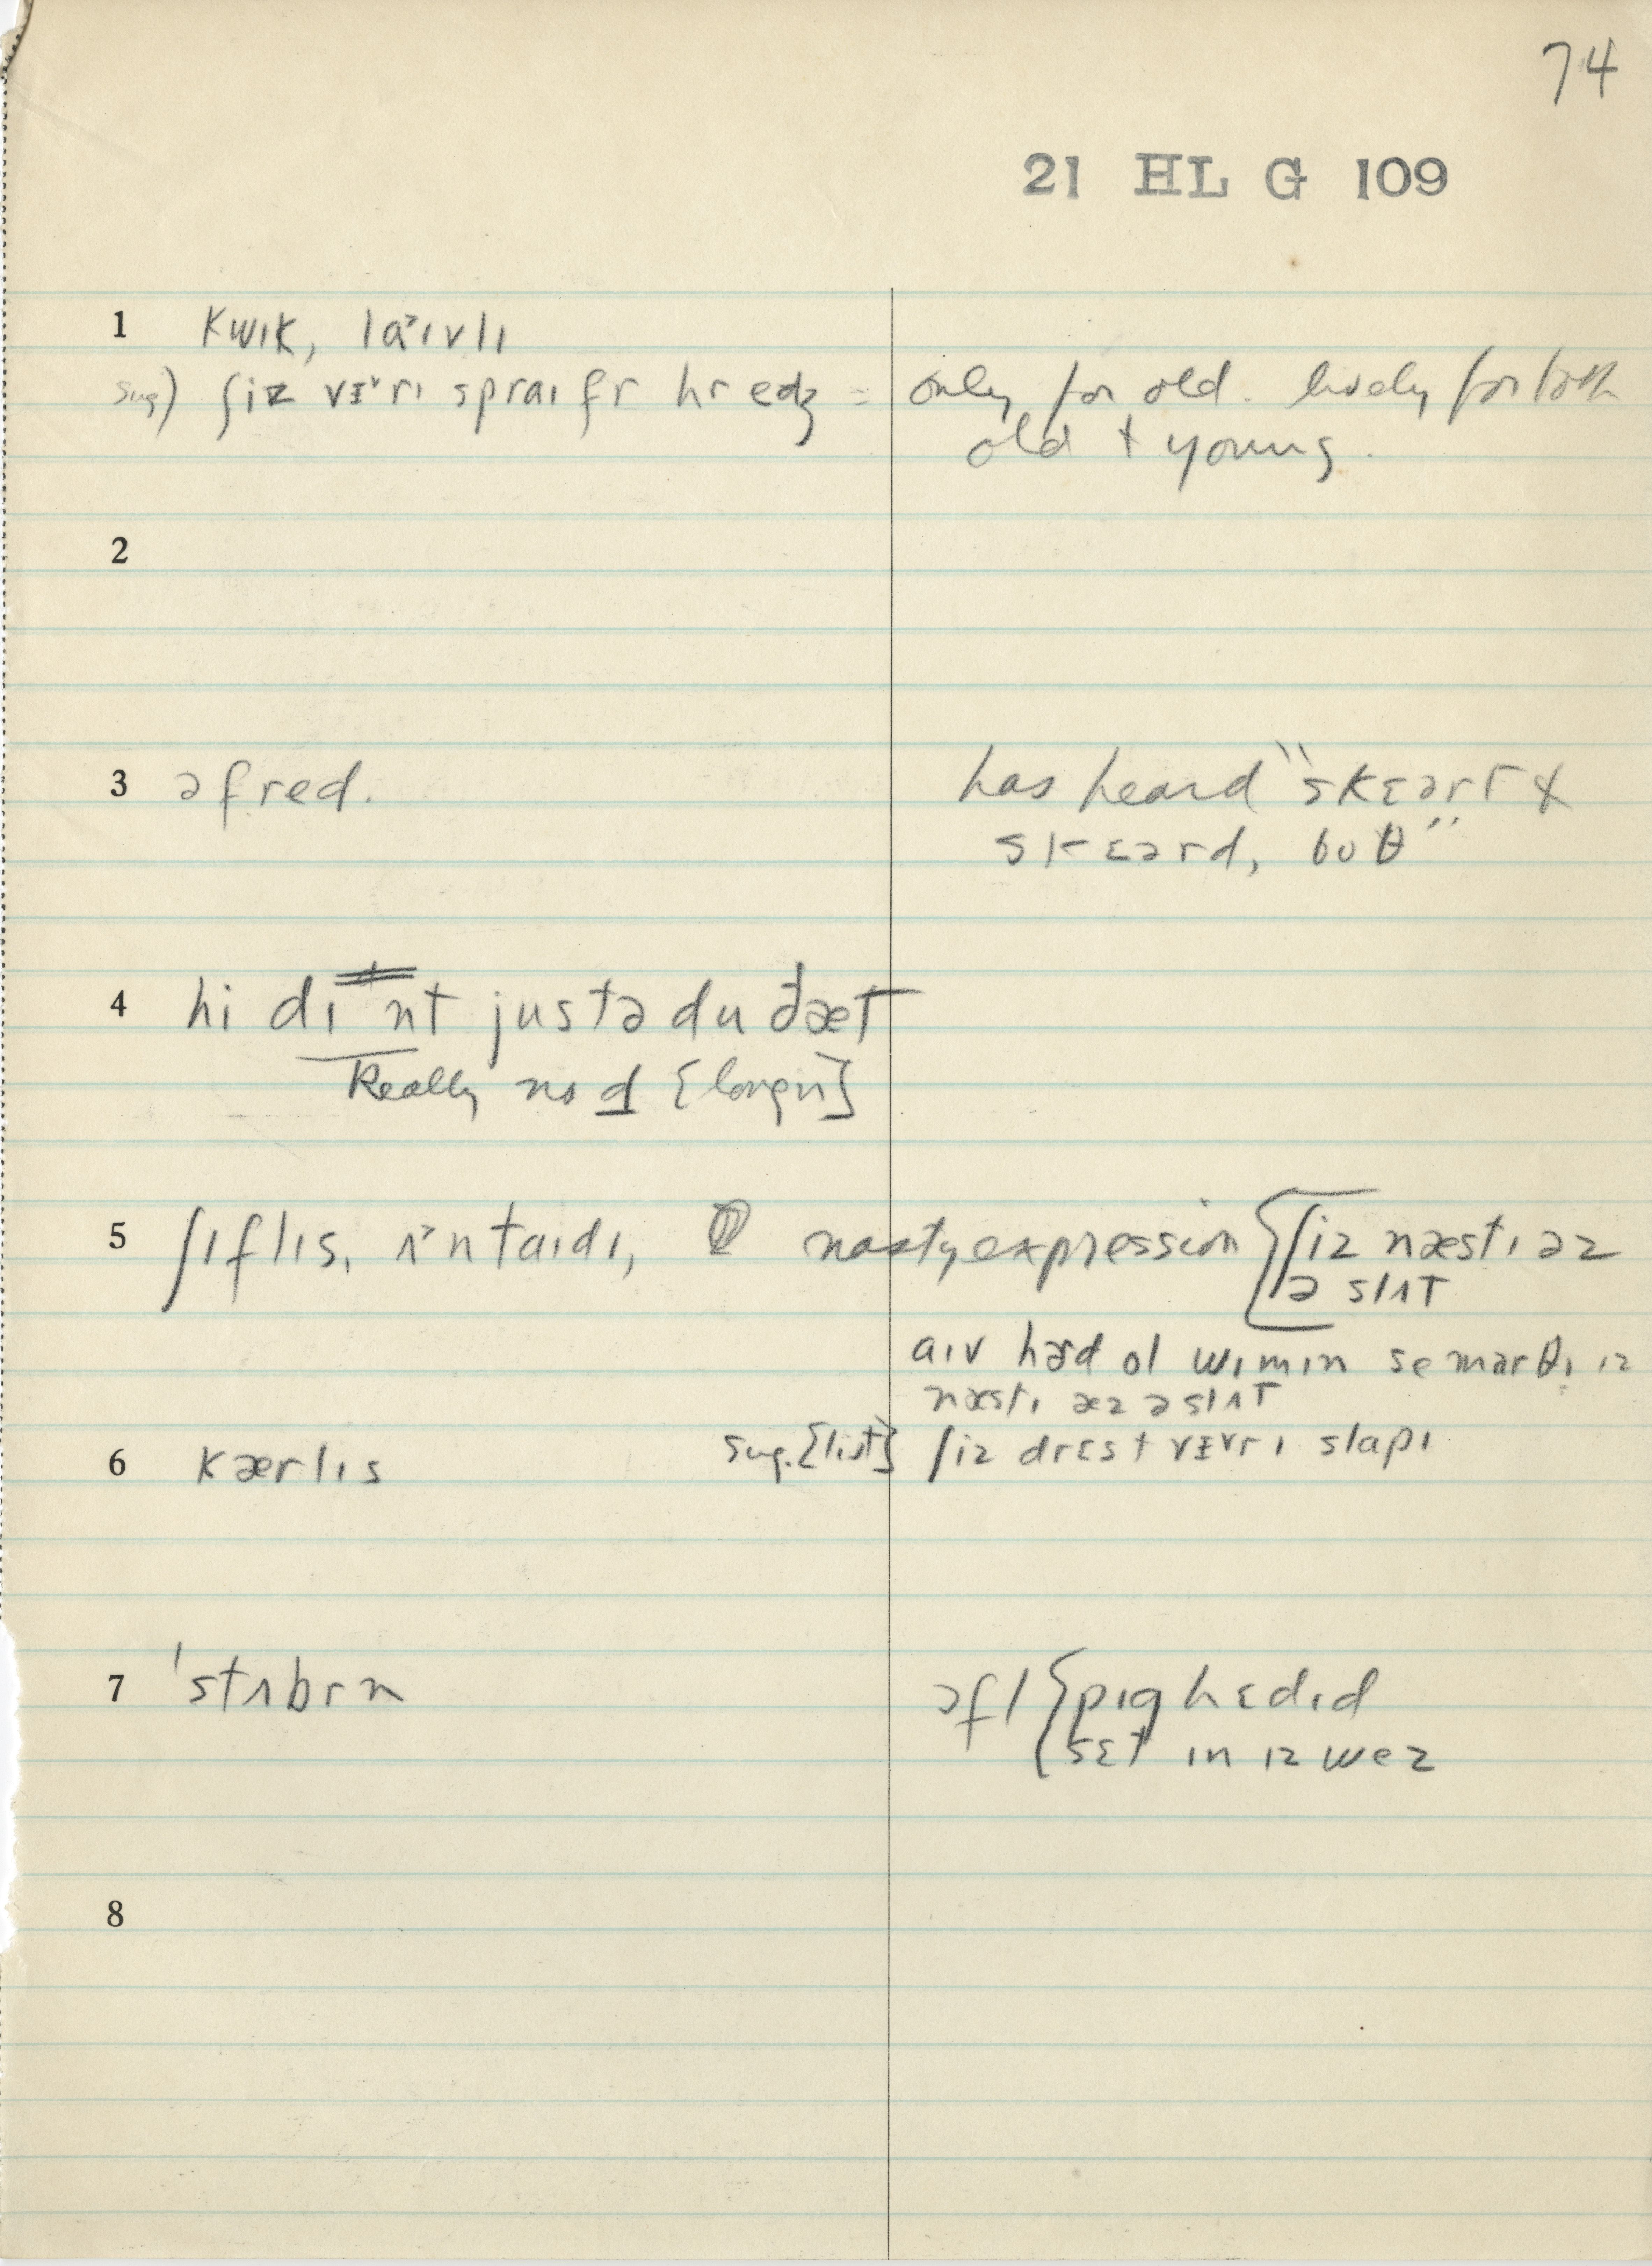 74
21 HL G 109
1 kwɪk, laˑ˃ɪvlɪ
sug) ʃiz vɪ˅rɪ spraɪ fr hr edʒ = only for old. lively for both
old + young.
2
3 əfred. has heard "skɛərt &
skɛərd, boθ"
4 hi dɪnt justə du ðæt
Really no d [longn]
5 ʃɪflɪs, ʌ˃ntaɪdɪ, nasty expression [ʃiz næstɪ əz
ə slʌt]
aɪv hərd ol wɪmɪn se marθɪ ɪz
næstɪ æz ə slʌt
6 kærlɪs sug. [list] ʃiz drɛst vɪ˅rɪ slapɪ
7 'stʌbrn ɔfl {pɪg hɛdɪd
sɛt ɪn ɪz wez
8